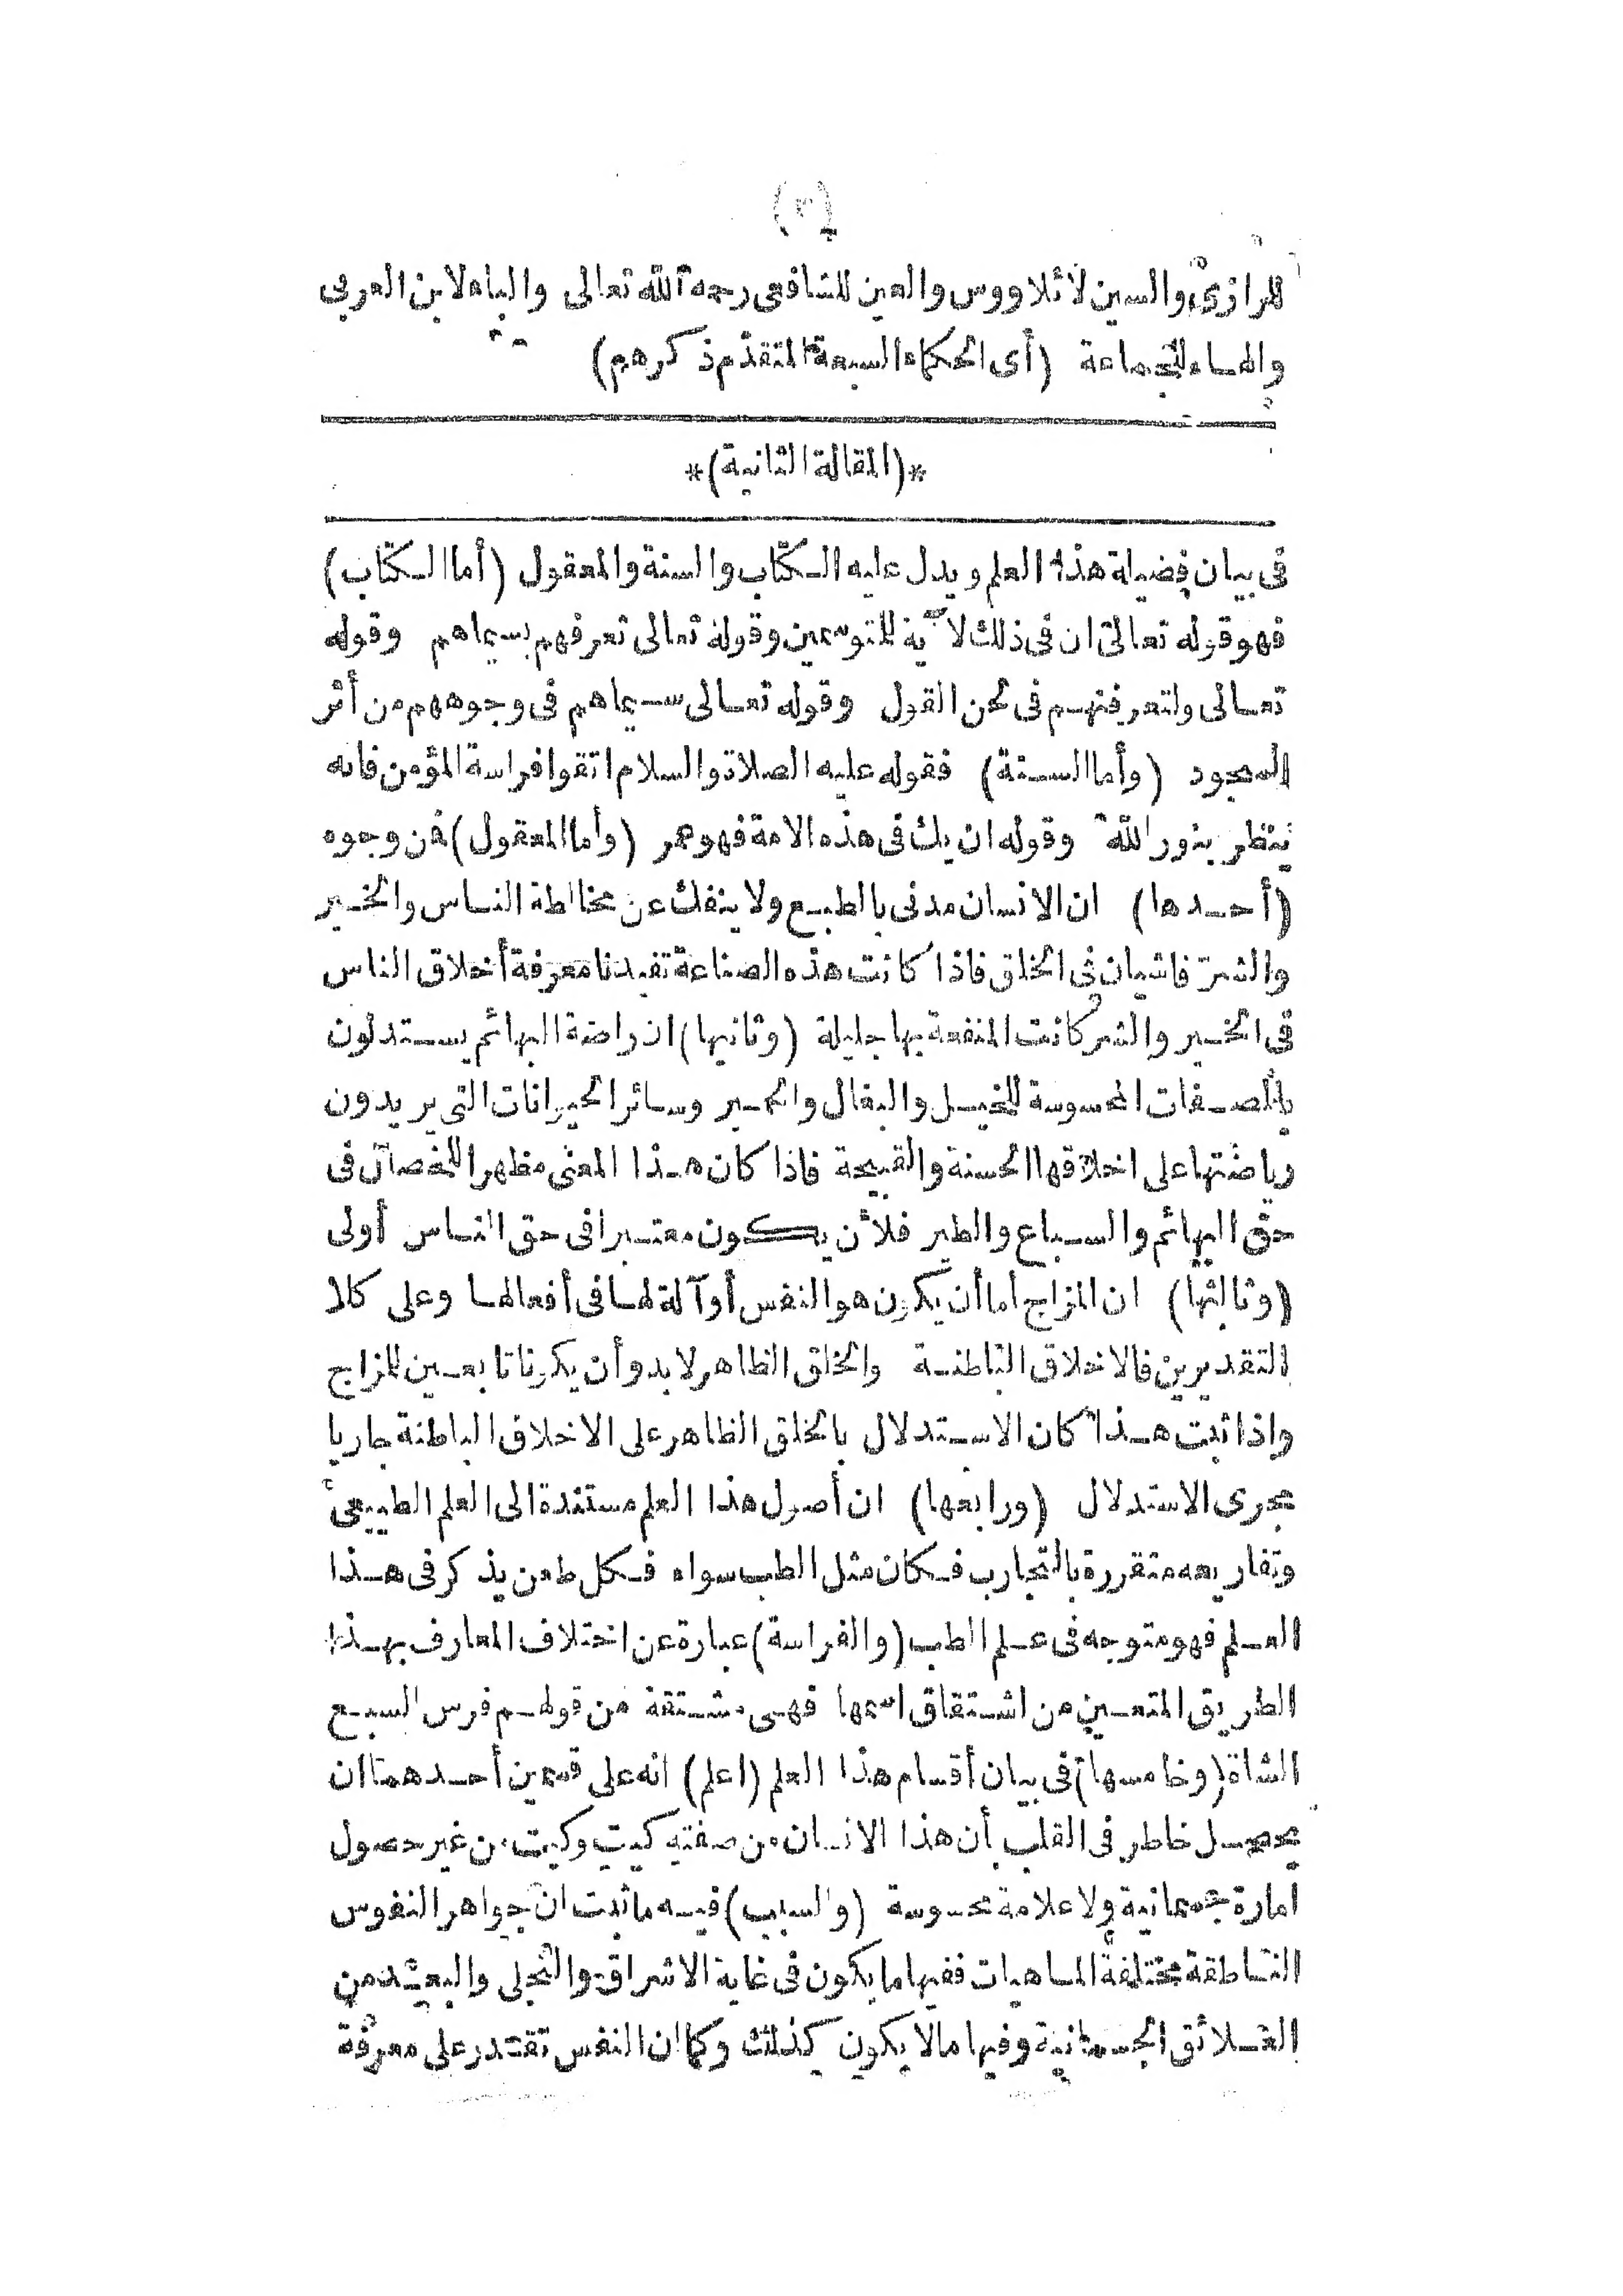 (٣)
للرازى والسين لائلاووس والعين للشافعى رحمه الله تعالى والياء لابن العربى
والهاء للجماعة (أى الحكماء السبعة المتقدّم ذكرهم)
*(المقالة الثانية)*
فى بيان فضيلة هذا العلم ويدل عليه الكتاب والسنة والمعقول (أما الكتاب)
فهو قوله تعالى ان فى ذلك لآية للمتوسمين وقوله تعالى تعرفهم بسيماهم وقوله
تعالى ولتعرفنهم فى لحن القول وقوله تعالى سيماهم فى وجوههم من أثر
السجود (وأما السنة) فقوله عليه الصلاة والسلام اتقوا فراسة المؤمن فانه
ينظر بنور الله وقوله ان يك فى هذه الامة فهو عمر (وأما المعقول) فمن وجوه
(أحدها) ان الانسان مدنى بالطبع ولا ينفك عن مخالطة الناس والخير
والشرّ فاشيان فى الخلق فاذا كانت هذه الصناعة تفيدنا معرفة أخلاق الناس
فى الخير والشر كانت المنفعة بها جليلة (وثانيها) ان راضة البهائم يستدلون
بالصفات المحسوسة للخيل والبغال والحمير وسائر الحيوانات التى يريدون
رياضتها على اخلاقها الحسنة والقبيحة فاذا كان هذا المعنى مظهرا للخصال فى
حق البهائم والسباع والطير فلأن يكون معتبرا فى حق الناس أولى
(وثالثها) ان المزاج أما أن يكون هو النفس أو آلة لها فى أفعالها وعلى كلا
التقديرين فالاخلاق الباطنة والخلق الظاهر لا بد وأن يكونا تابعين للمزاج
واذا ثبت هذا كان الاستدلال بالخلق الظاهر على الاخلاق الباطنة جاريا
مجرى الاستدلال (ورابعها) ان أصول هذا العلم مستندة الى العلم الطبيعى
وتفاريعه متقررة بالتجارب فكان مثل الطب سواء فكل طعن يذكر فى هذا
العلم فهو متوجه فى علم الطب (والفراسة) عبارة عن اختلاف المعارف بهذا
الطريق المتعين من اشتقاق اسمها فهى مشتقة من قولهم فرس السبع
الشاة (وخامسها) فى بيان أقسام هذا العلم (اعلم) انه على قسمين أحدهما ان
يحصل خاطر فى القلب أن هذا الانسان من صفته كيت وكيت من غير حصول
امارة جسمانية ولا علامة محسوسة (والسبب) فيه ما ثبت ان جواهر النفوس
الناطقة مختلفة الماهيات ففيها ما يكون فى غاية الاشراق والتجلى والبعد من
العلائق الجسمانية وفيها ما لا يكون كذلك وكما ان النفس تقتدر على معرفة